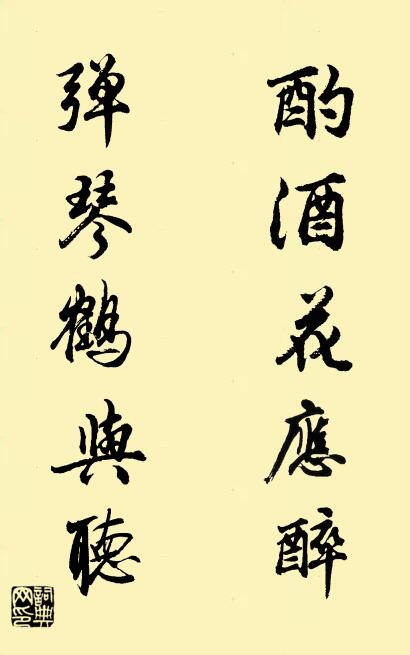 酌酒花應醉
弹琴鶴與聽
詞典
网印